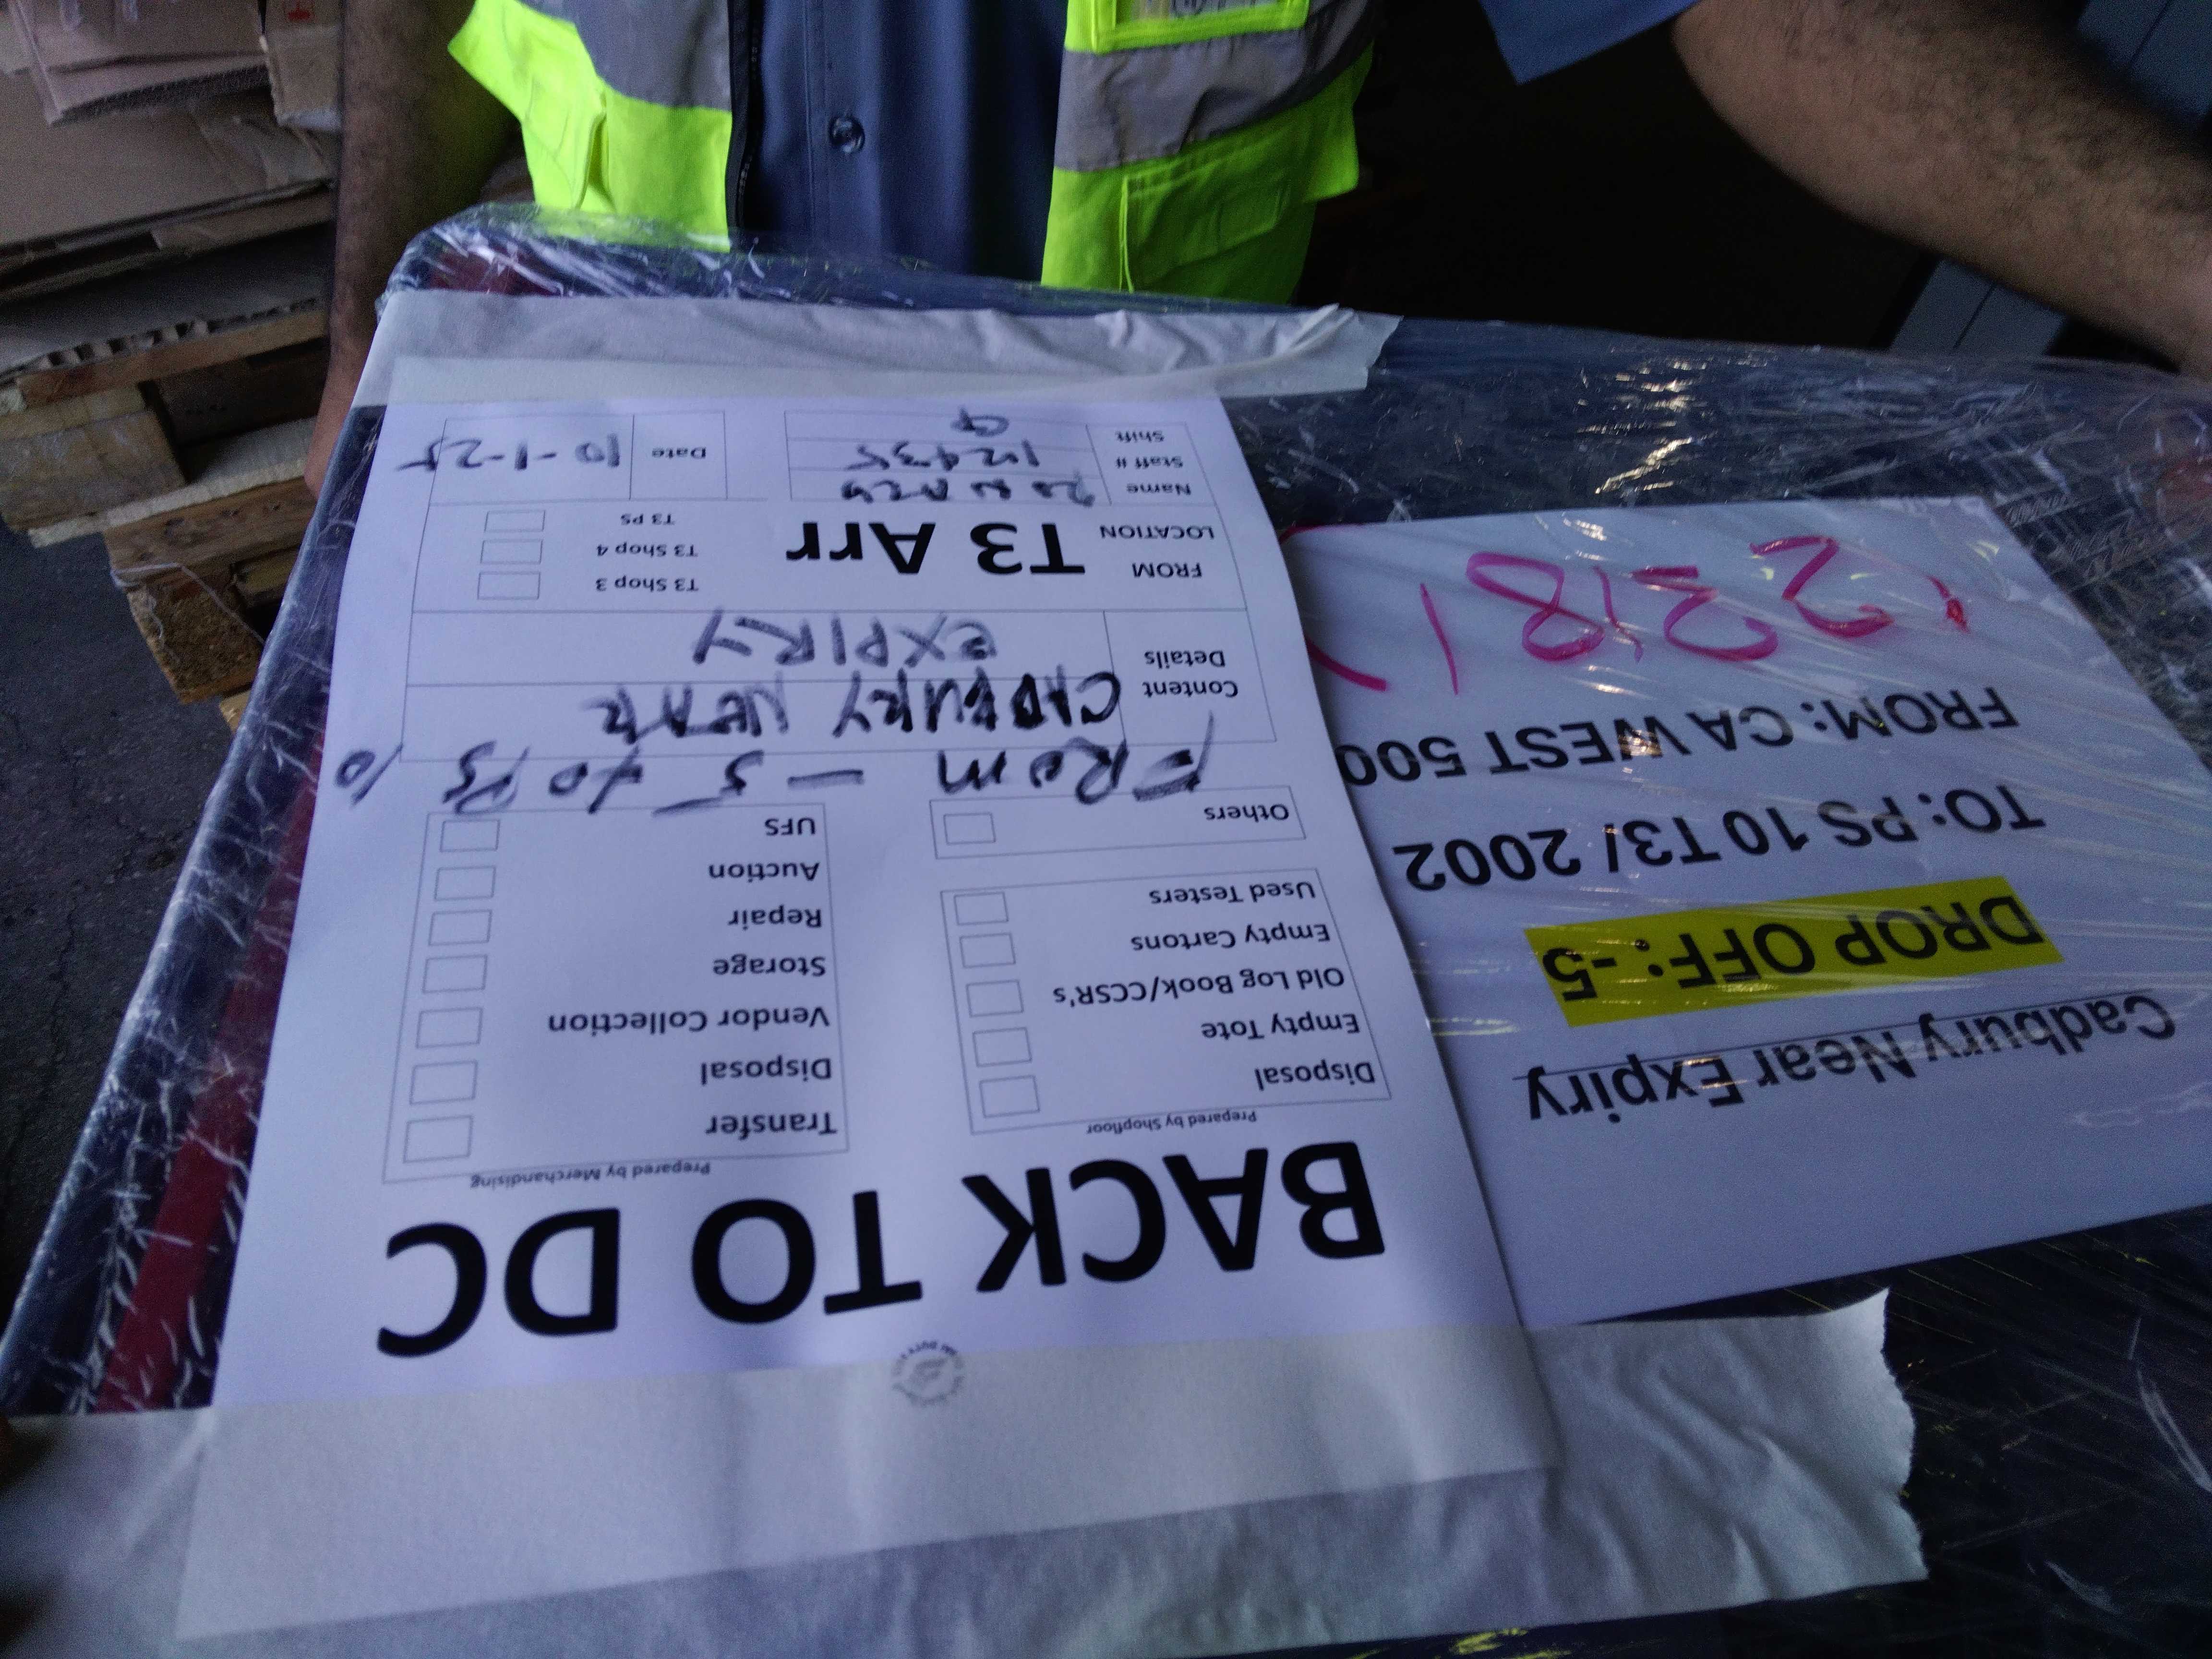 BACK TO DC
Prepared by Shopfloor
Disposal
Empty Tote
Old Log Book/CCSR's
Empty Cartons
Used Testers
Others
Prepared by Merchandising
Transfer
Disposal
Vendor Collection
Storage
Repair
Auction
UFS
FROM - -5 to PS 10
Content CADBURY NEAR
Details EXPIRY
FROM
LOCATION
T3 Arr
T3 Shop 3
T3 Shop 4
T3 PS
Name
Staff #
Shift
Date 10-1-25
Cadbury Near Expiry
DROP OFF: -5
TO: PS 10 T3/ 2002
FROM: CA WEST 500